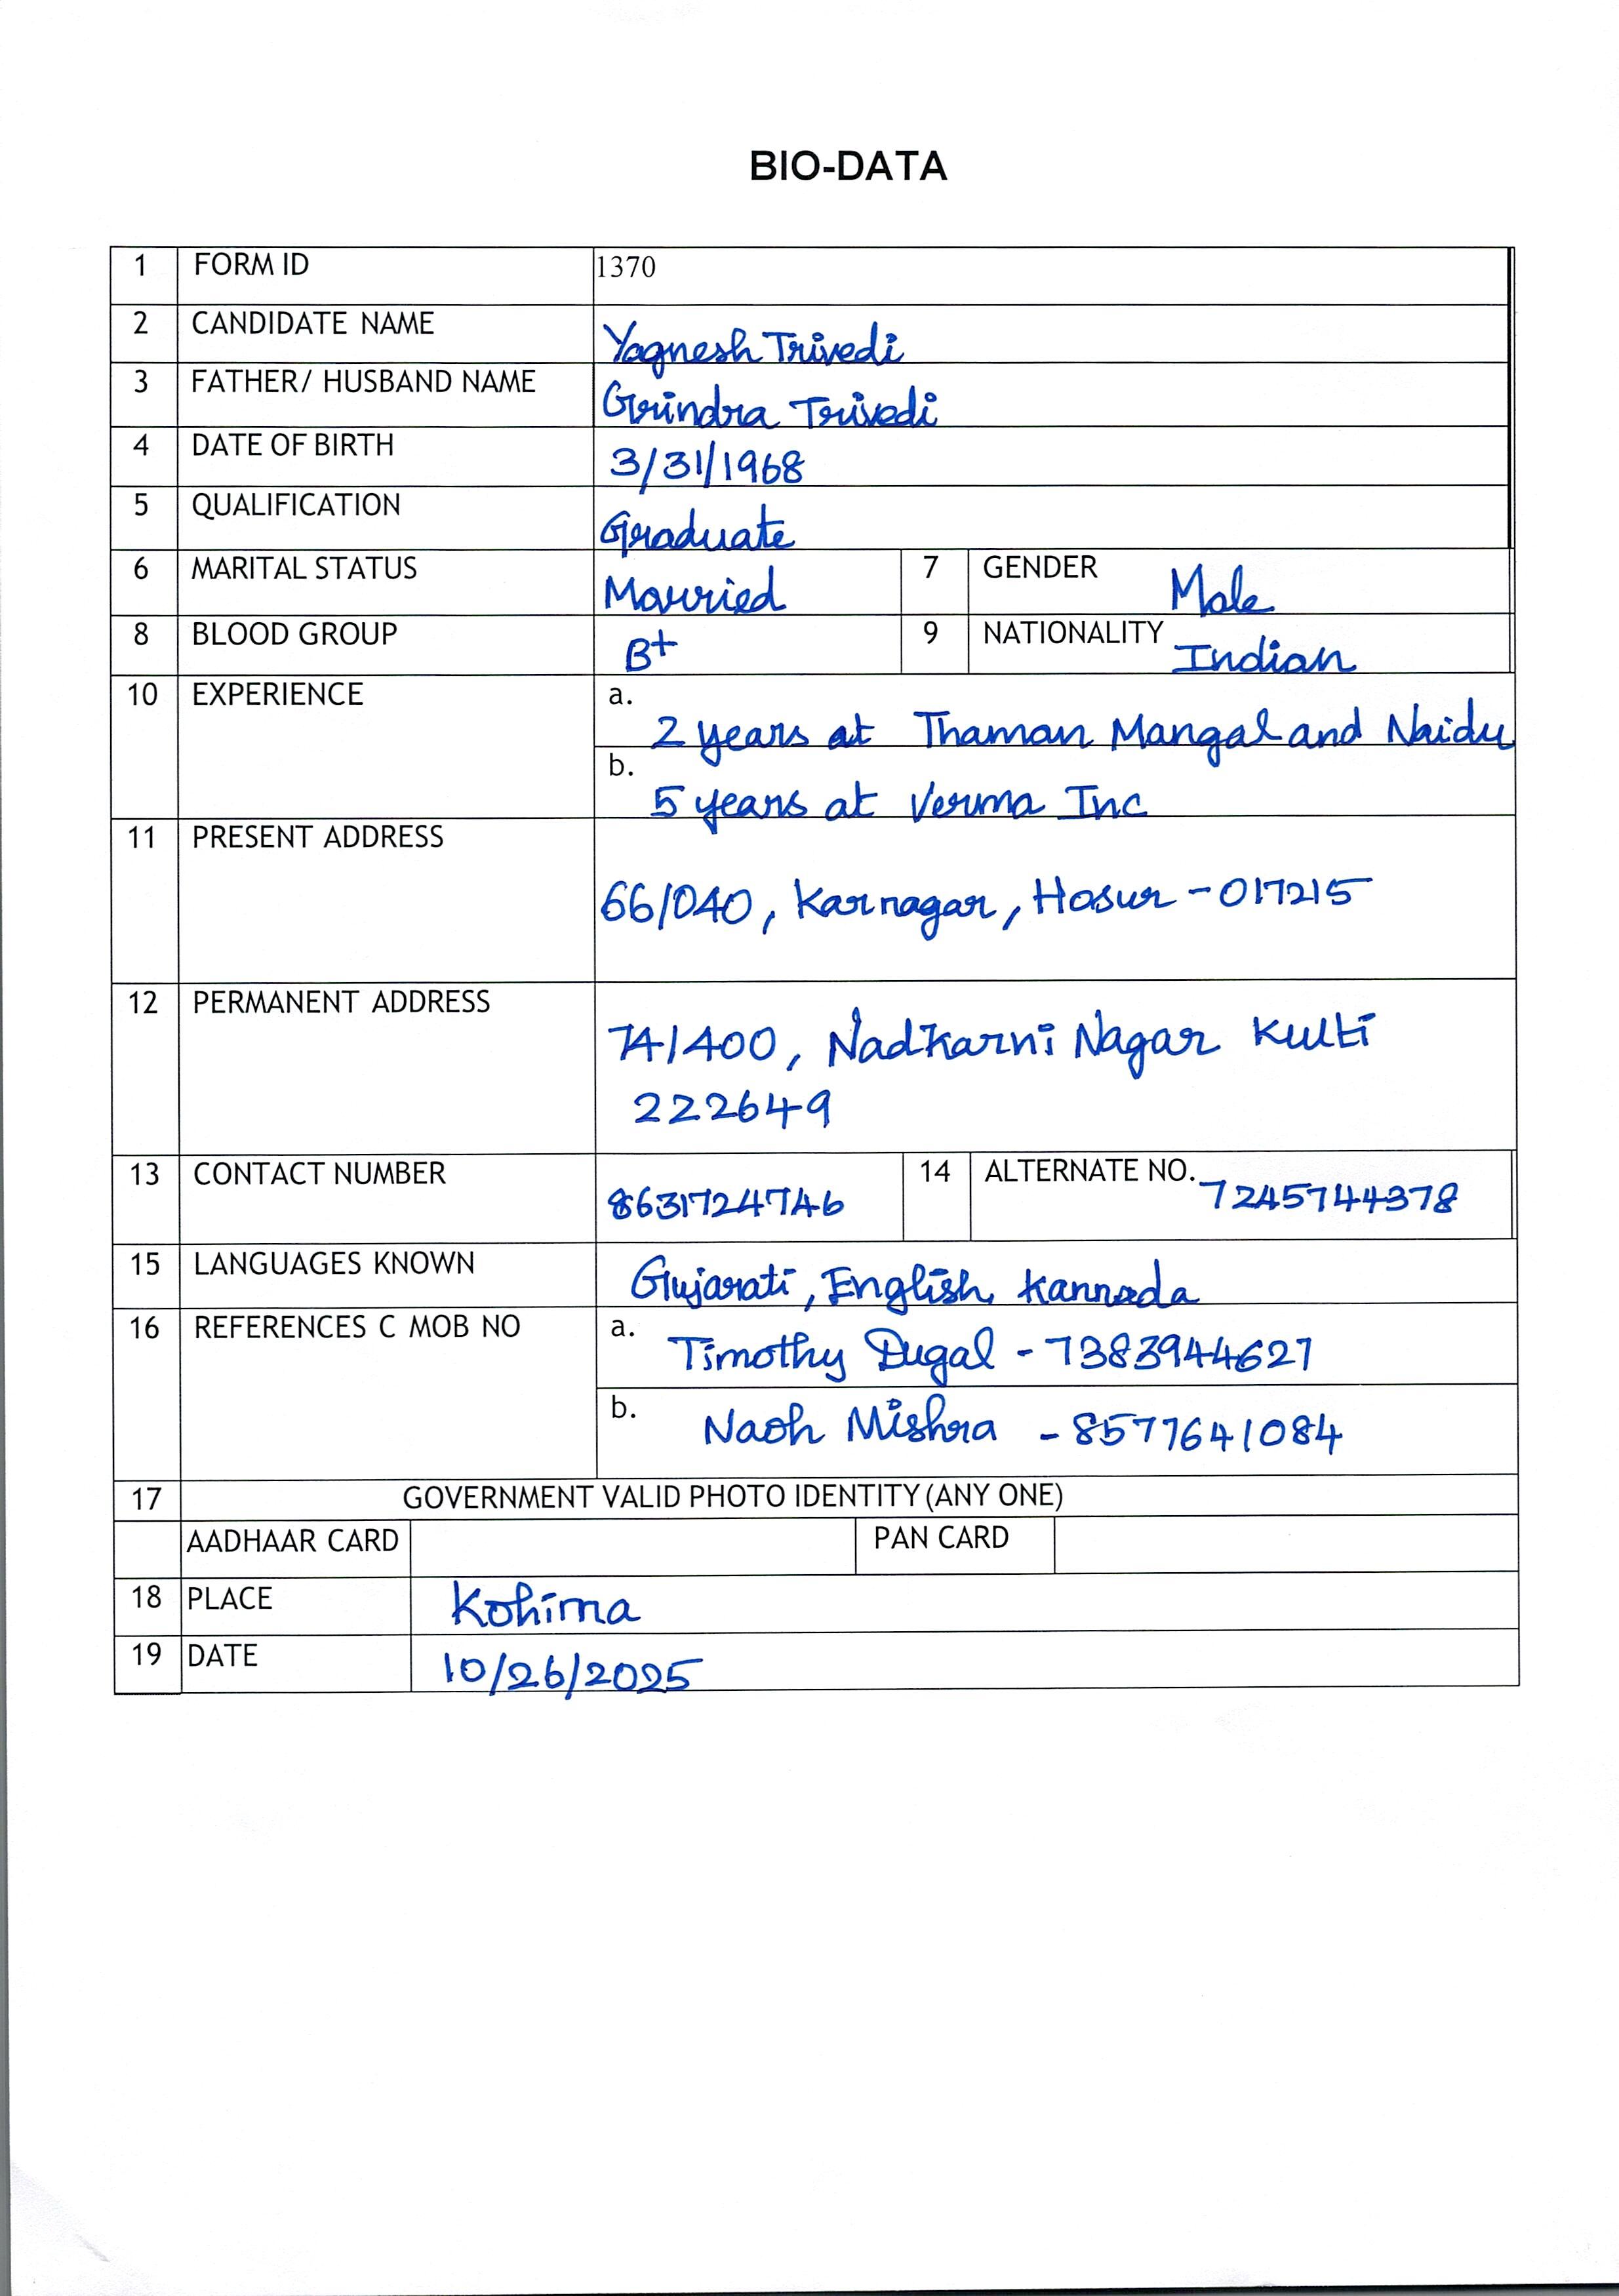 BIO-DATA
1 FORM ID 1370
2 CANDIDATE NAME Yagnesh Trivedi
3 FATHER/ HUSBAND NAME Girindra Trivedi
4 DATE OF BIRTH 3/31/1968
5 QUALIFICATION Graduate
6 MARITAL STATUS Married 7 GENDER Male
8 BLOOD GROUP B+ 9 NATIONALITY Indian
10 EXPERIENCE a. 2 years at Thaman Mangal and Naidu
b. 5 years at Verma Inc
11 PRESENT ADDRESS
66/040, Karnagar, Hosur - 017215
12 PERMANENT ADDRESS
74/400, Nadkarni Nagar Kulti
222649
13 CONTACT NUMBER 8631724746 14 ALTERNATE NO. 7245744378
15 LANGUAGES KNOWN Gujarati, English, Kannada
16 REFERENCES C MOB NO a. Timothy Dugal - 7383944627
b. Naoh Mishra - 8577641084
17 GOVERNMENT VALID PHOTO IDENTITY (ANY ONE)
AADHAAR CARD PAN CARD
18 PLACE Kohima
19 DATE 10/26/2025